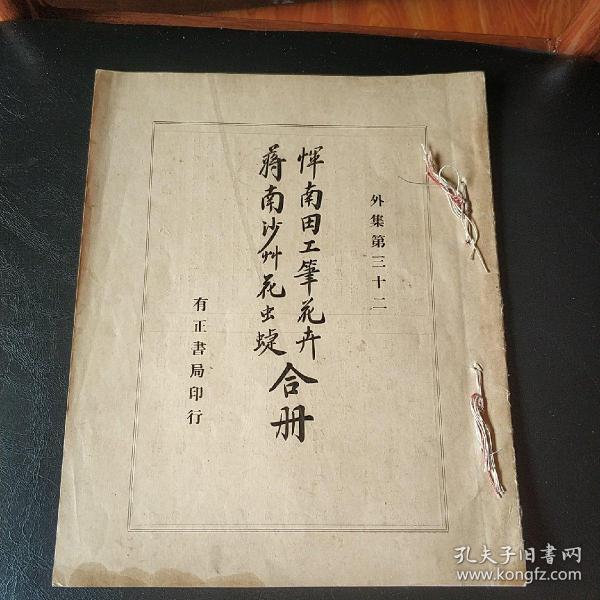 外集第三十二
惲南田工筆花卉
蔣南沙艸花虫蜨
合册
有正書局印行
孔夫子旧书网
www.kongfz.com